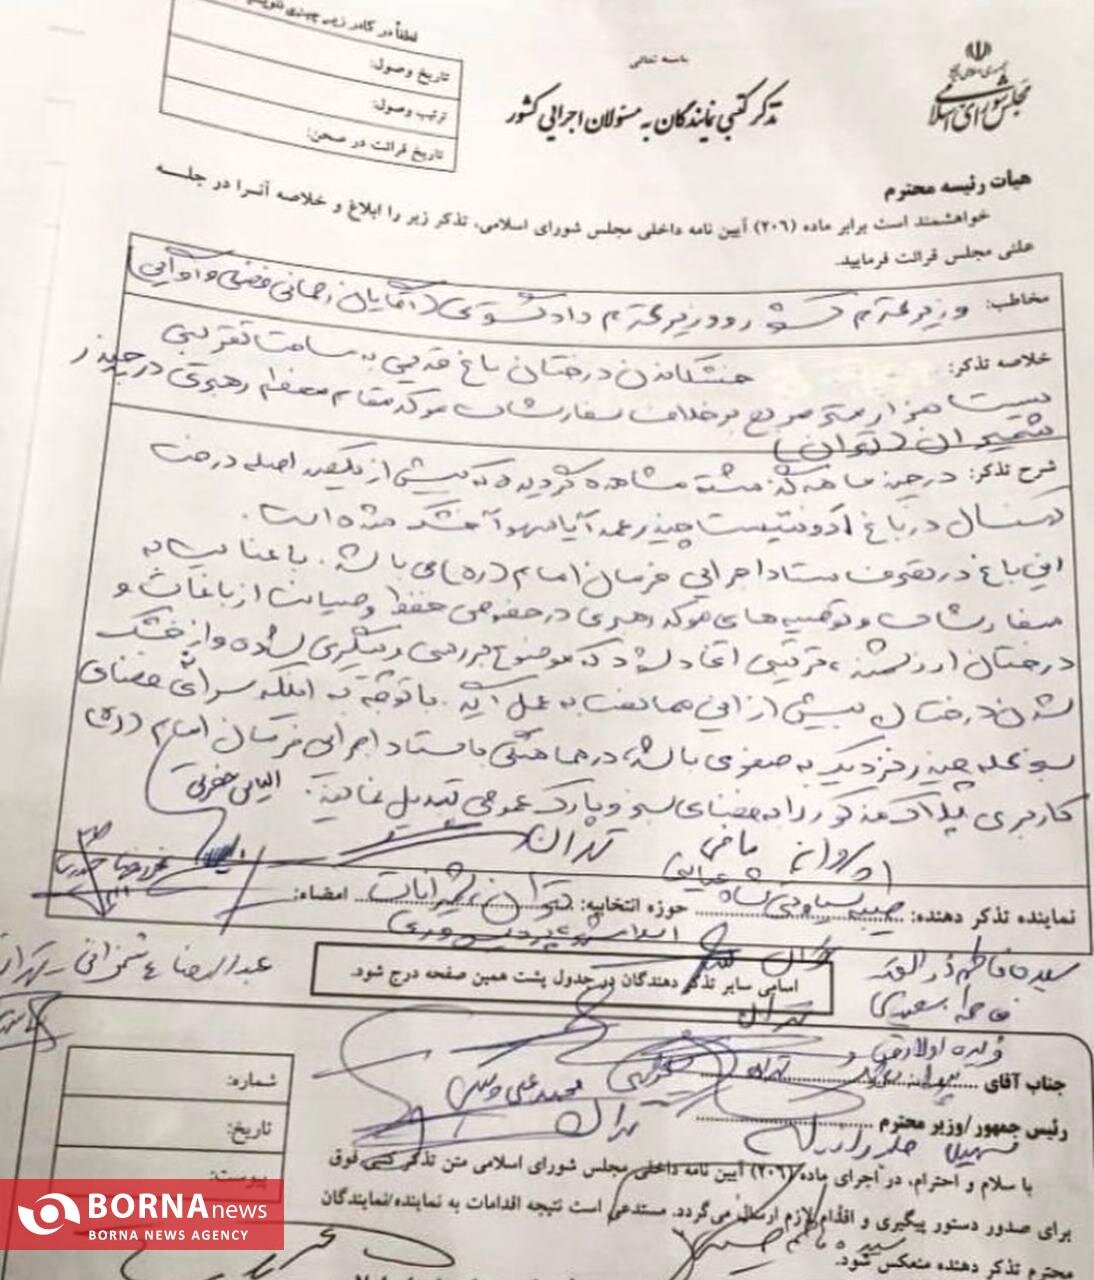 لطفاً در کادر زیر چیزی ننویسید
تاریخ وصول:
ترتیب وصول:
تاریخ قرائت در صحن:
باسمه تعالی
تذکر کتبی نمایندگان به مسئولان اجرایی کشور
جمهوری اسلامی ایران
مجلس شورای اسلامی
هیأت رئیسه محترم
خواهشمند است برابر ماده (۲۰۶) آیین نامه داخلی مجلس شورای اسلامی، تذکر زیر را ابلاغ و خلاصه آنرا در جلسه
علنی مجلس قرائت فرمایید.
مخاطب: وزیر محترم کشور و وزیر محترم دادگستری (آقایان رحمانی فضلی و آوایی)
خلاصه تذکر: خشکاندن درختان باغ قدیمی به مساحت تقریبی
بیست هزار متر مربع برخلاف سفارشات موکد مقام معظم رهبری در چیذر
شمیران (تهران)
شرح تذکر: در چند ماهه گذشته مشاهده گردیده که بیش از یکصد اصله درخت
کهنسال در باغ ادونتیست چیذر عمداً یا سهواً خشک شده است.
این باغ در تصرف ستاد اجرایی فرمان امام (ره) می باشد. با عنایت به
سفارشات و توصیه های موکد رهبری در خصوص حفظ و صیانت از باغات و
درختان ارزشمند، ترتیبی اتخاذ شود که موضوع بررسی و پیگیری شده و از خشک
شدن درختان بیش از این ممانعت به عمل آید. با توجه به اینکه سرانه فضای
سبز محله چیذر نزدیک به صفر می باشد، در هماهنگی با ستاد اجرایی فرمان امام (ره)
کاربری پلاک مذکور را به فضای سبز و پارک عمومی تبدیل نمایند.
پروانه مافی تهران
نماینده تذکر دهنده: طیبه سیاوشی شاه عنایتی حوزه انتخابیه: تهران، شمیرانات امضاء:
اسلامشهر پردیس و ری
سیده فاطمه ذوالقدر تهران
عبدالرضا
تهران
اسامی سایر تذکر دهندگان در جدول پشت همین صفحه درج شود.
فاطمه سعیدی تهران
فریده اولادقباد
شماره:
تاریخ:
پیوست:
جناب آقای
محمدعلی وکیلی
تهران
رئیس جمهور/وزیر محترم
سهیلا جلودارزاده
با سلام و احترام، در اجرای ماده (۲۰۶) آیین نامه داخلی مجلس شورای اسلامی متن تذکر کتبی فوق
برای صدور دستور پیگیری و اقدام لازم ارسال می گردد. مستدعی است نتیجه اقدامات به نماینده/نمایندگان
محترم تذکر دهنده منعکس شود.
BORNA news
BORNA NEWS AGENCY